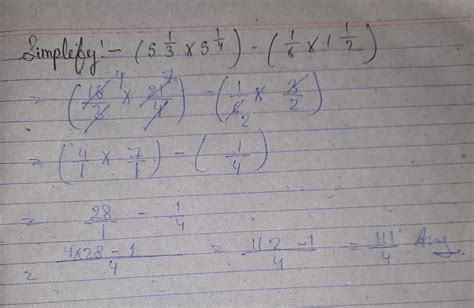 Simplefy:- (5 1/3 × 5 1/4) - (1/6 × 1 1/2)
= (16/3 4 × 21/4 7) - (1/6 2 × 3/2)
= (4/1 × 7/1) - (1/4)
= 28/1 - 1/4
= 4×28-1/4 = 112-1/4 = 111/4 Ans